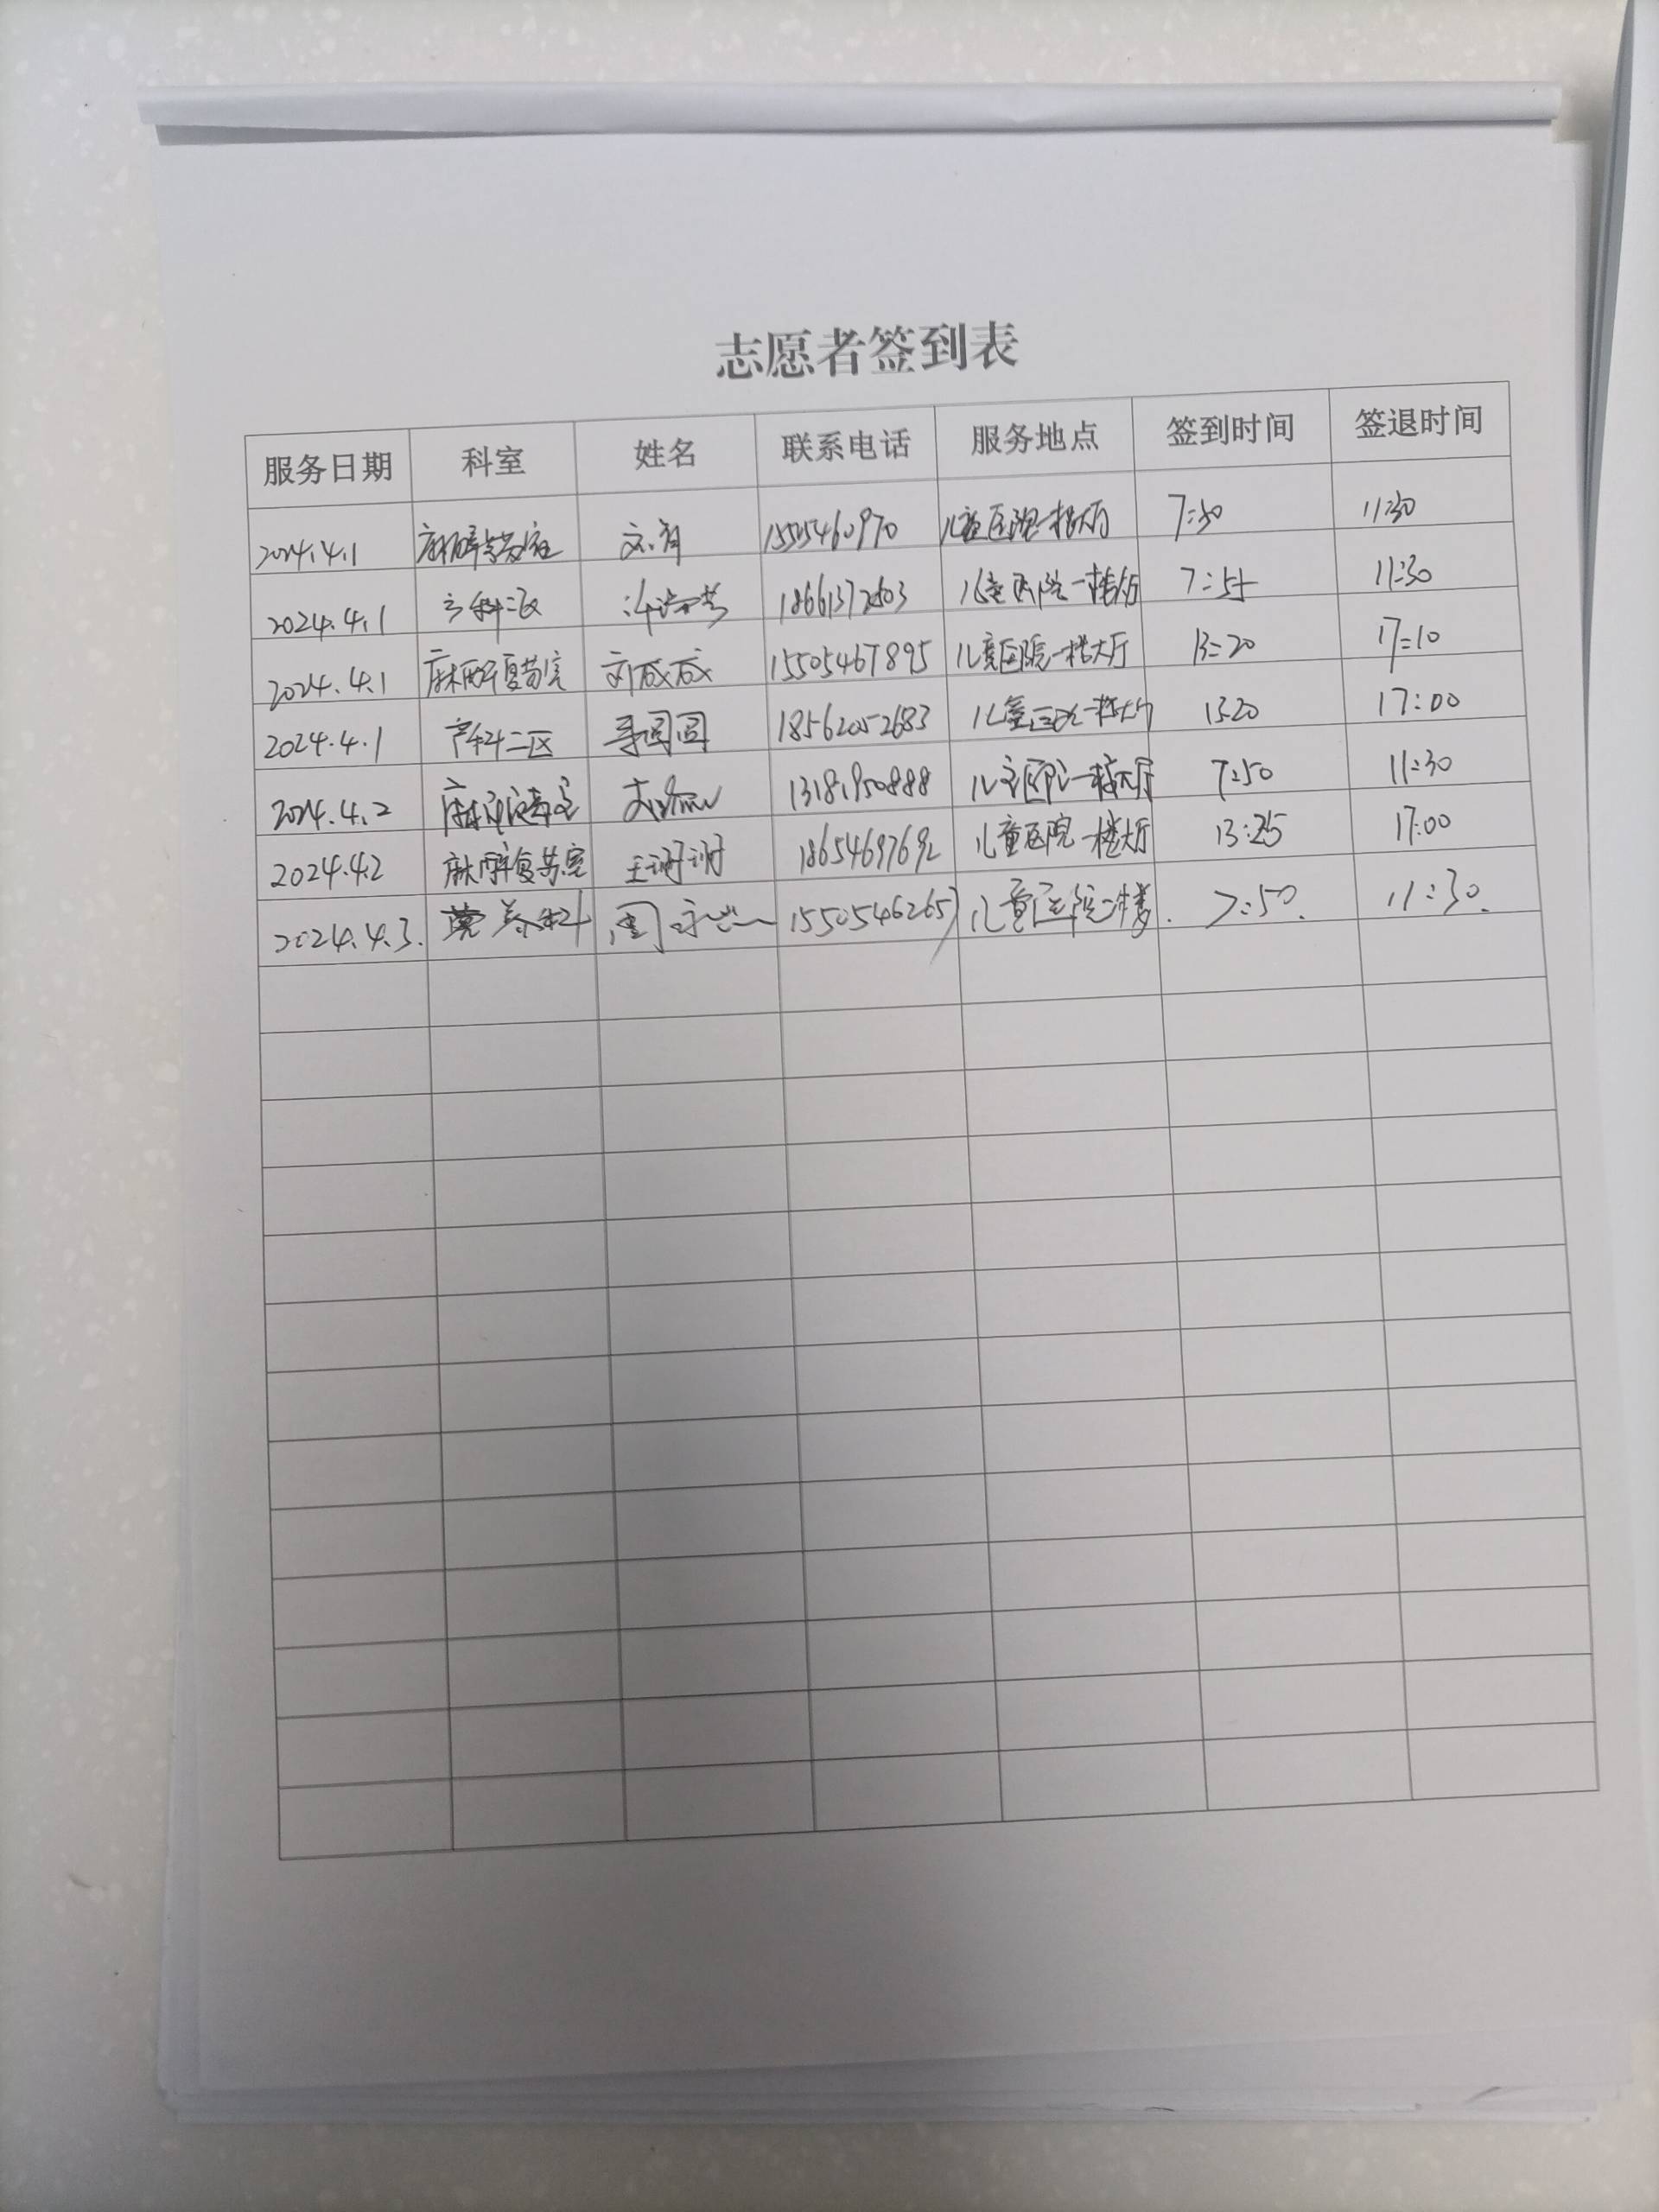 志愿者签到表
服务日期 科室 姓名 联系电话 服务地点 签到时间 签退时间
2024.4.1 儿童医院一楼大厅 7:30 11:30
2024.4.1 儿童医院一楼大厅 7:55 11:30
2024.4.1 麻醉复苏室 15505467895 儿童医院一楼大厅 13:20 17:10
2024.4.1 产科二区 18562052683 儿童医院一楼大厅 1320 17:00
2024.4.2 13181950888 儿童医院一楼大厅 7:50 11:30
2024.4.2 麻醉复苏室 王讨讨 18654697692 儿童医院一楼大厅 13:25 17:00
2024.4.3. 营养科 15505462657 儿童医院一楼. 7:50. 11:30.